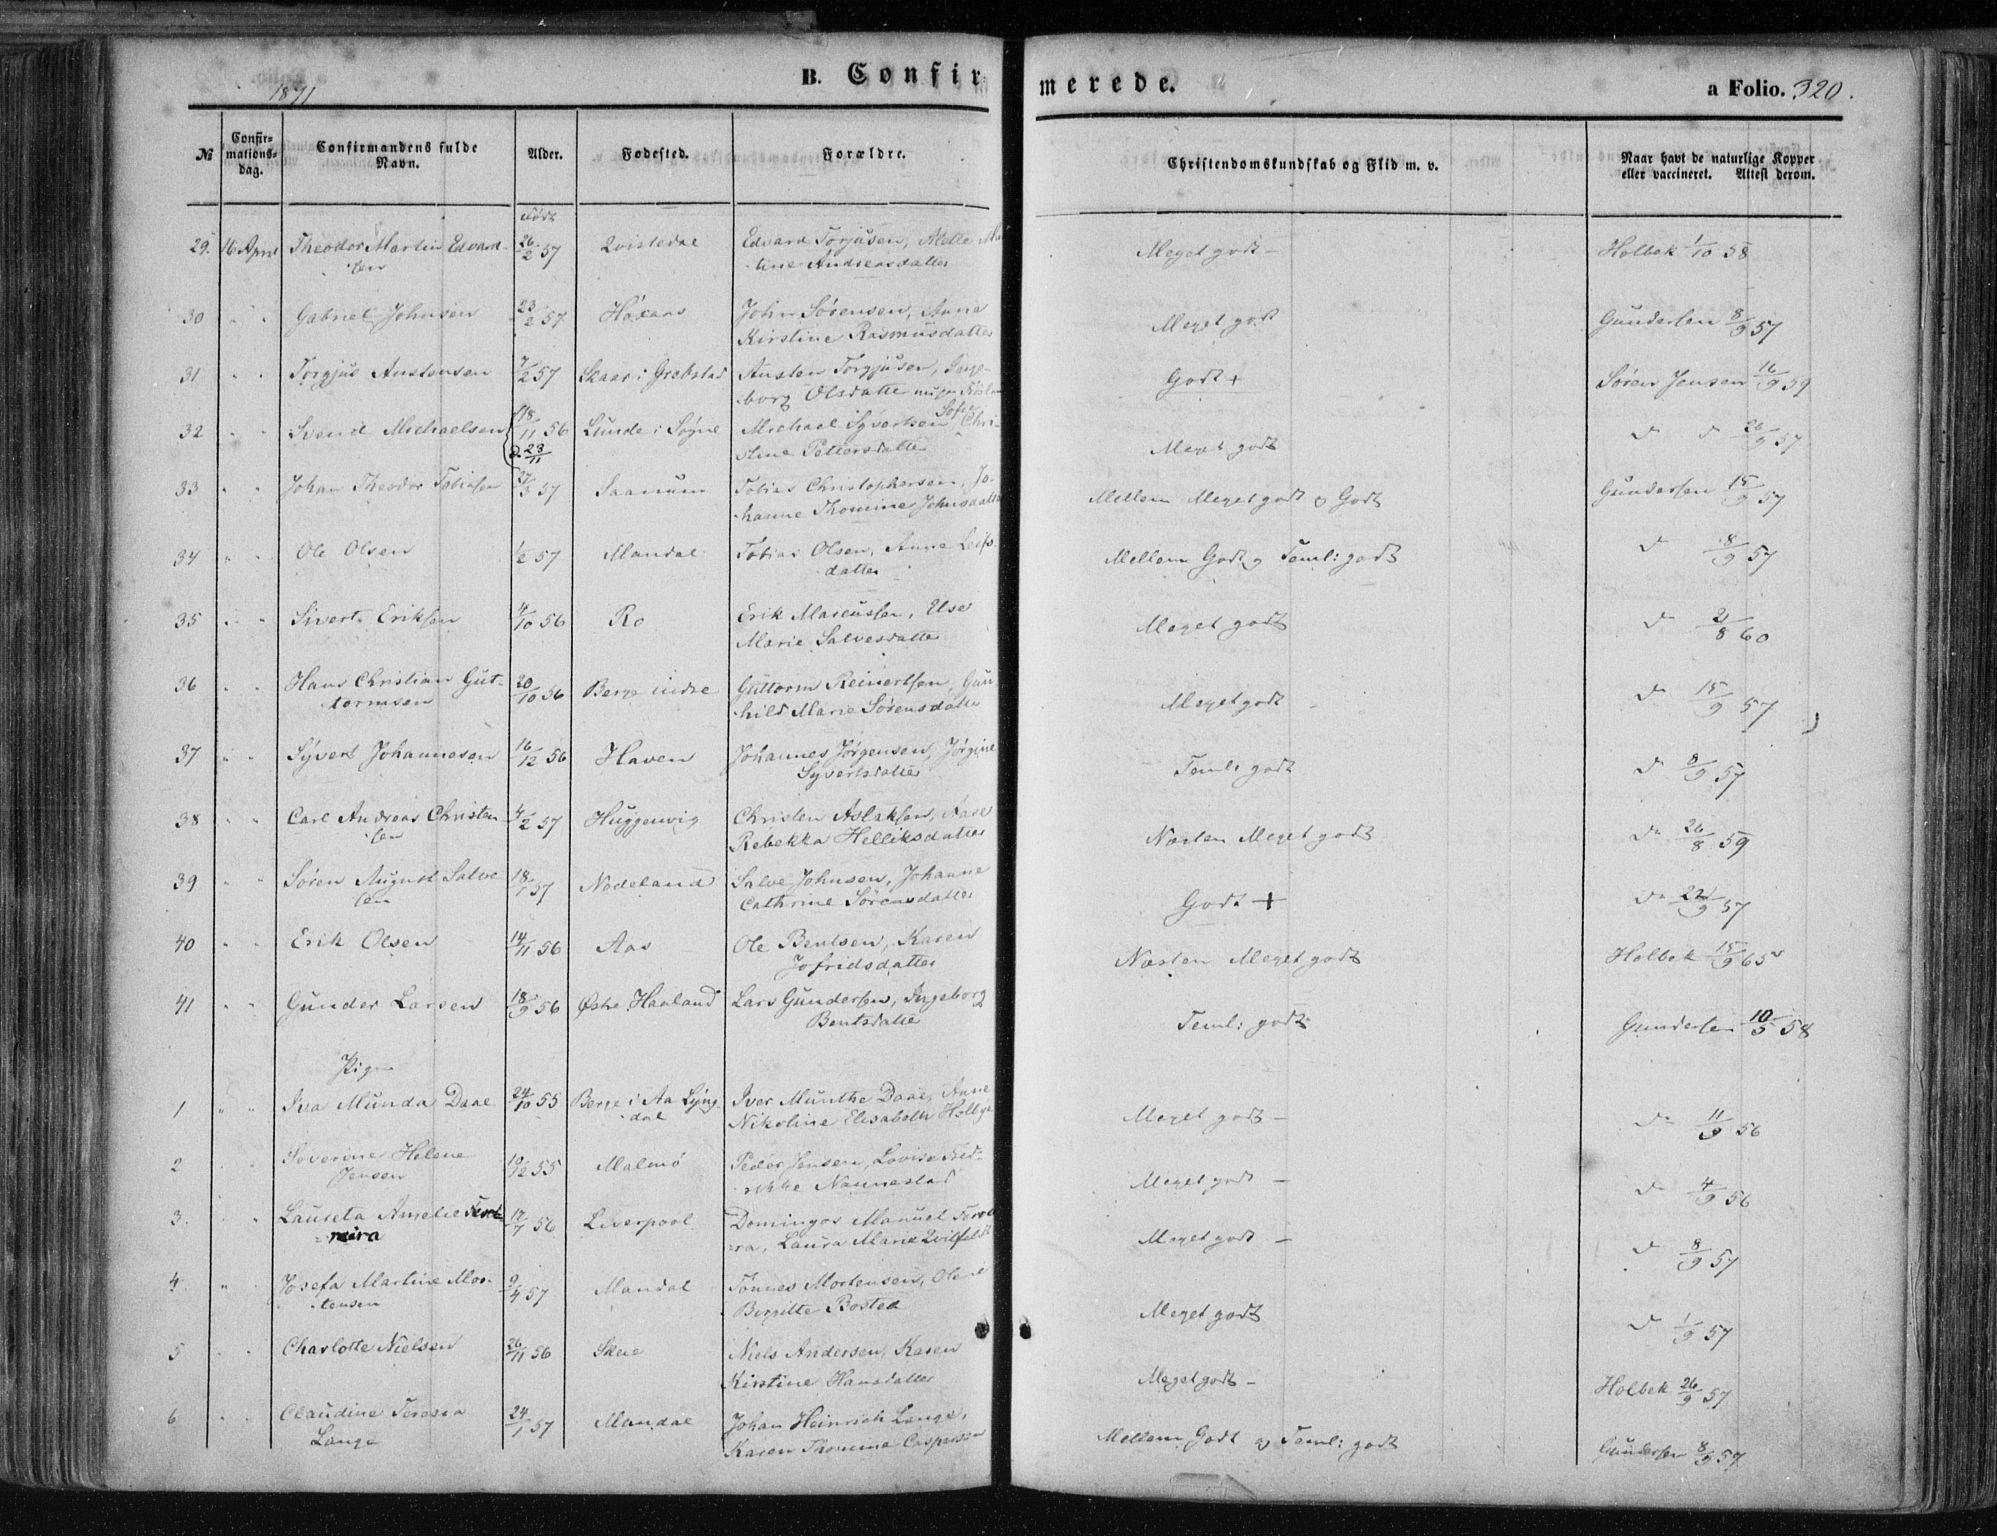 B. Confirmerede.
a Folio. 320.
1871
№
Confir-
mations-
dag.
Confirmandens fulde
Navn.
Alder.
Fødested.
Forældre.
Christendomskundskab og Flid m. v.
Naar havt de naturlige Kopper
eller vaccineret. Attest derom.
Født
29. 16 April Theodor Martin Edvard- 26/2 57 Qvistedal Edvard Torjusen, Meget godt - Holbek 1/10 58
sen -tine Andreasdatter
30 " " Gabriel Johnsen 23/2 57 John Sørensen, Anne Meget godt Gundersen 8/9 57
Kirstine Rasmusdatter
31 " " Torgjus Austensen 7/2 57 Skaar i Grebstad Austen Torgjusen, Inge- Godt + Søren Jensen 16/9 59
borg Olsdatter
32 " " Svend Michaelsen 18/11 56 Lunde i Søgne Michael Syvertsen, Sofie Chri- Meget godt d d 26/9 57
d 23/11 stine Pettersdatter
33 " " Johan Theodor Tobiasen 27/3 57 Saanum Tobias Christophersen, Jo- Mellem Meget godt og Godt Gundersen 15/9 57
hanne Thomine Johnsdatter
34 " " Ole Olsen 1/2 57 Mandal Tobias Olsen, Anne Leifs- Mellem Godt og Teml: godt do 8/9 57
datter
35 " " Sivert Eriksen 4/10 56 Ro Erik Marcussen, Else Meget godt do 21/8 60
Marie Salvesdatter
36 " " Hans Christian Gut- 20/10 56 Berge indre Guttorm Reinertsen, Gun Meget godt do 15/9 57
tormsen hild Marie Sørensdatter
37 " " Syvert Johannesen 16/12 56 Haven Johannes Jørgensen, Jørgine Teml: godt do 8/9 57
Syvertsdatter
38 " " Carl Andreas Christen 4/2 57 Huggenvig Christen Aslaksen, Aase Næsten Meget godt do 26/8 59
sen Rebekka Helliksdatter
39 " " Søren August Salve 18/1 57 Nodeland Salve Johnsen, Johanne Godt + do 22/9 57
sen Cathrine Sørensdatter
40 " " Erik Olsen 14/11 56 Aas Ole Bentsen, Karen Næsten Meget godt Holbek 15/9 65
Jofridsdatter
41 " " Gunder Larsen 18/9 56 Østre Haaland Lars Gundersen, Ingeborg Teml: godt Gundersen 10/5 58
Bentsdatter
Piger
1 " " Iva Munda Daae 24/10 55 Berge i Aa Lyng- Iver Munthe Daae, Anne Meget godt - do 11/9 56
dal Nikoline Elisabeth
2 " " Severine Helene 10/12 55 Malmø Peder Jensen, Lovise Fred- Meget godt - do 4/9 56
Jensen rikke Nannestad
3. " Laureta Amelie 17/7 56 Liverpool Domingos Manuel Meget godt - do 8/9 57
-ra, Laura Marie Qvilfeldt
4 " " Josefa Martine Mor- 9/4 57 Mandal Tønnes Mortensen, Meget godt do 1/9 57
tensen Birgitte Bosted
5 " " Charlotte Nielsen 26/11 56 Skeie Niels Andersen, Karen Meget godt - Holbek 26/9 57
Kirstine Hansdatter
6 " " Claudine Teresia 24/1 57 Mandal Johan Heinrich Lange, Mellem Godt og Teml: godt Gundersen 8/9 57
Lange Karen Thomine Caspersen